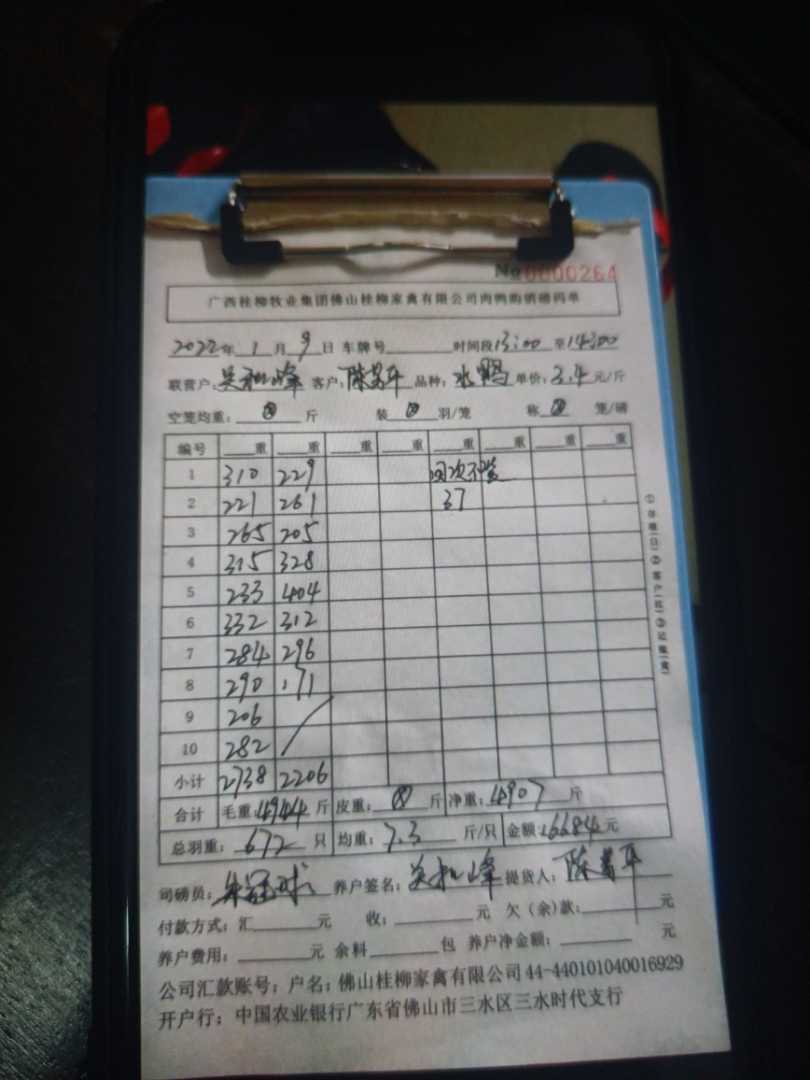 No 0000264
广西桂柳牧业集团佛山桂柳家禽有限公司肉鸭购销磅码单
2022年 1 月 9 日 车牌号 时间段13:00 至14:00
联营户: 客户: 品种:水鸭 单价:3.4元/斤
空笼均重: 斤 装 羽/笼 称 笼/磅
编号 重 重 重 重 重 重 重 重
1 310 229
2 221 261 37
3 265 205
4 315 328
5 233 404
6 332 312
7 284 296
8 290 171
9 206
10 282
小计 2738 2206
合计 毛重:4944斤 皮重: 斤 净重:4907 斤
总羽重:672只 均重:7.3 斤/只 金额:16684元
司磅员: 养户签名: 提货人:
付款方式:汇 元 收: 元 欠(余)款: 元
养户费用: 元 余料 包 养户净金额: 元
公司汇款账号:户名:佛山桂柳家禽有限公司 44-440101040016929
开户行:中国农业银行广东省佛山市三水区三水时代支行